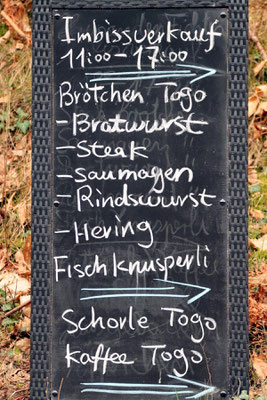 Imbissverkauf
11:00-17:00
Brötchen Togo
-Bratwurst
-Steak
-Saumagen
-Rindswurst
-Hering
Fischknusperli
Schorle Togo
Kaffee Togo